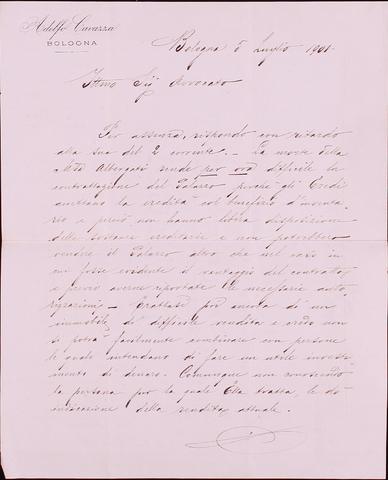 Adolfo Cavazza
BOLOGNA
Bologna 5 Luglio 1901
Illmo Sig Avvocato
Per assenza, rispondo con ritardo
alla sua del 2 corrente. — La morte della
Mse Albergati rende per ora difficile la
contrattazione del Palazzo perché gli Eredi
accettano la eredità col benefizio d'inventa
rio e perciò non hanno libera disposizione
della sostanza ereditaria e non potrebbero
vendere il Palazzo altro che nel caso in
cui fosse evidente il vantaggio del contratto
e previo averne riportate le necessarie auto
rizzazioni. — Trattasi poi ancora di un
immobile di difficile vendita e credo non
si potrà facilmente combinare con persone
le quali intendano di fare un utile investi
mento di denaro. Comunque non conoscendo
la persona per la quale Ella tratta, le dò
indicazione della rendita attuale.